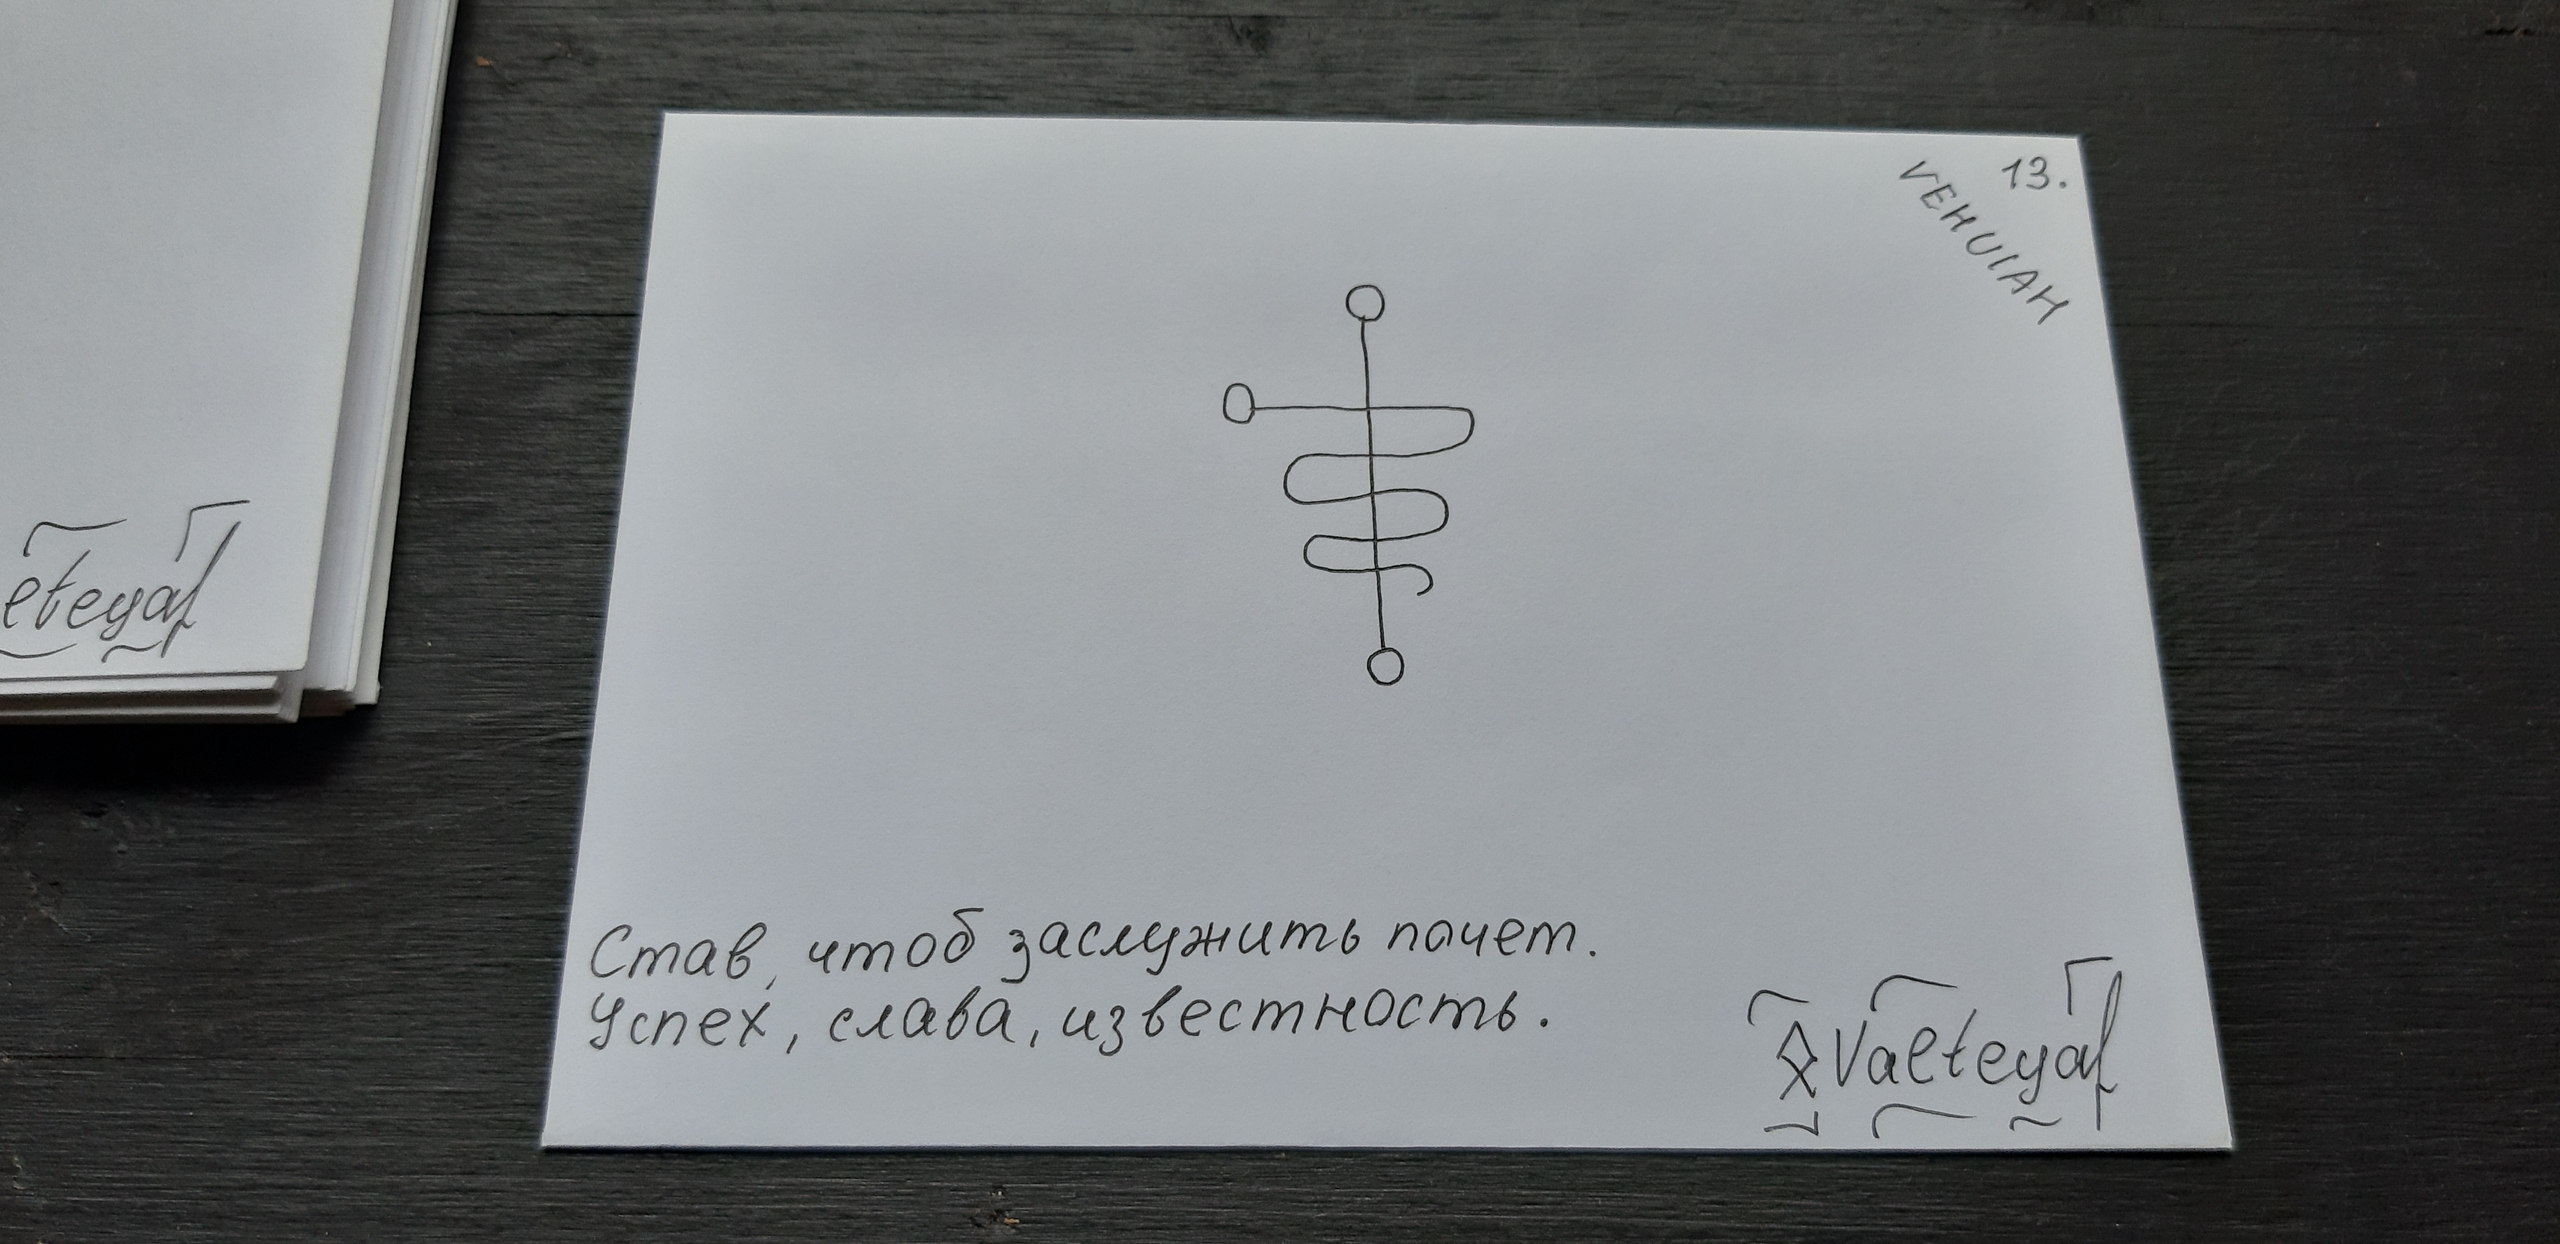 eteyal
13.
VEHUIAH
Став, чтоб заслужить почет.
Успех, слава, известность.
Valteyal